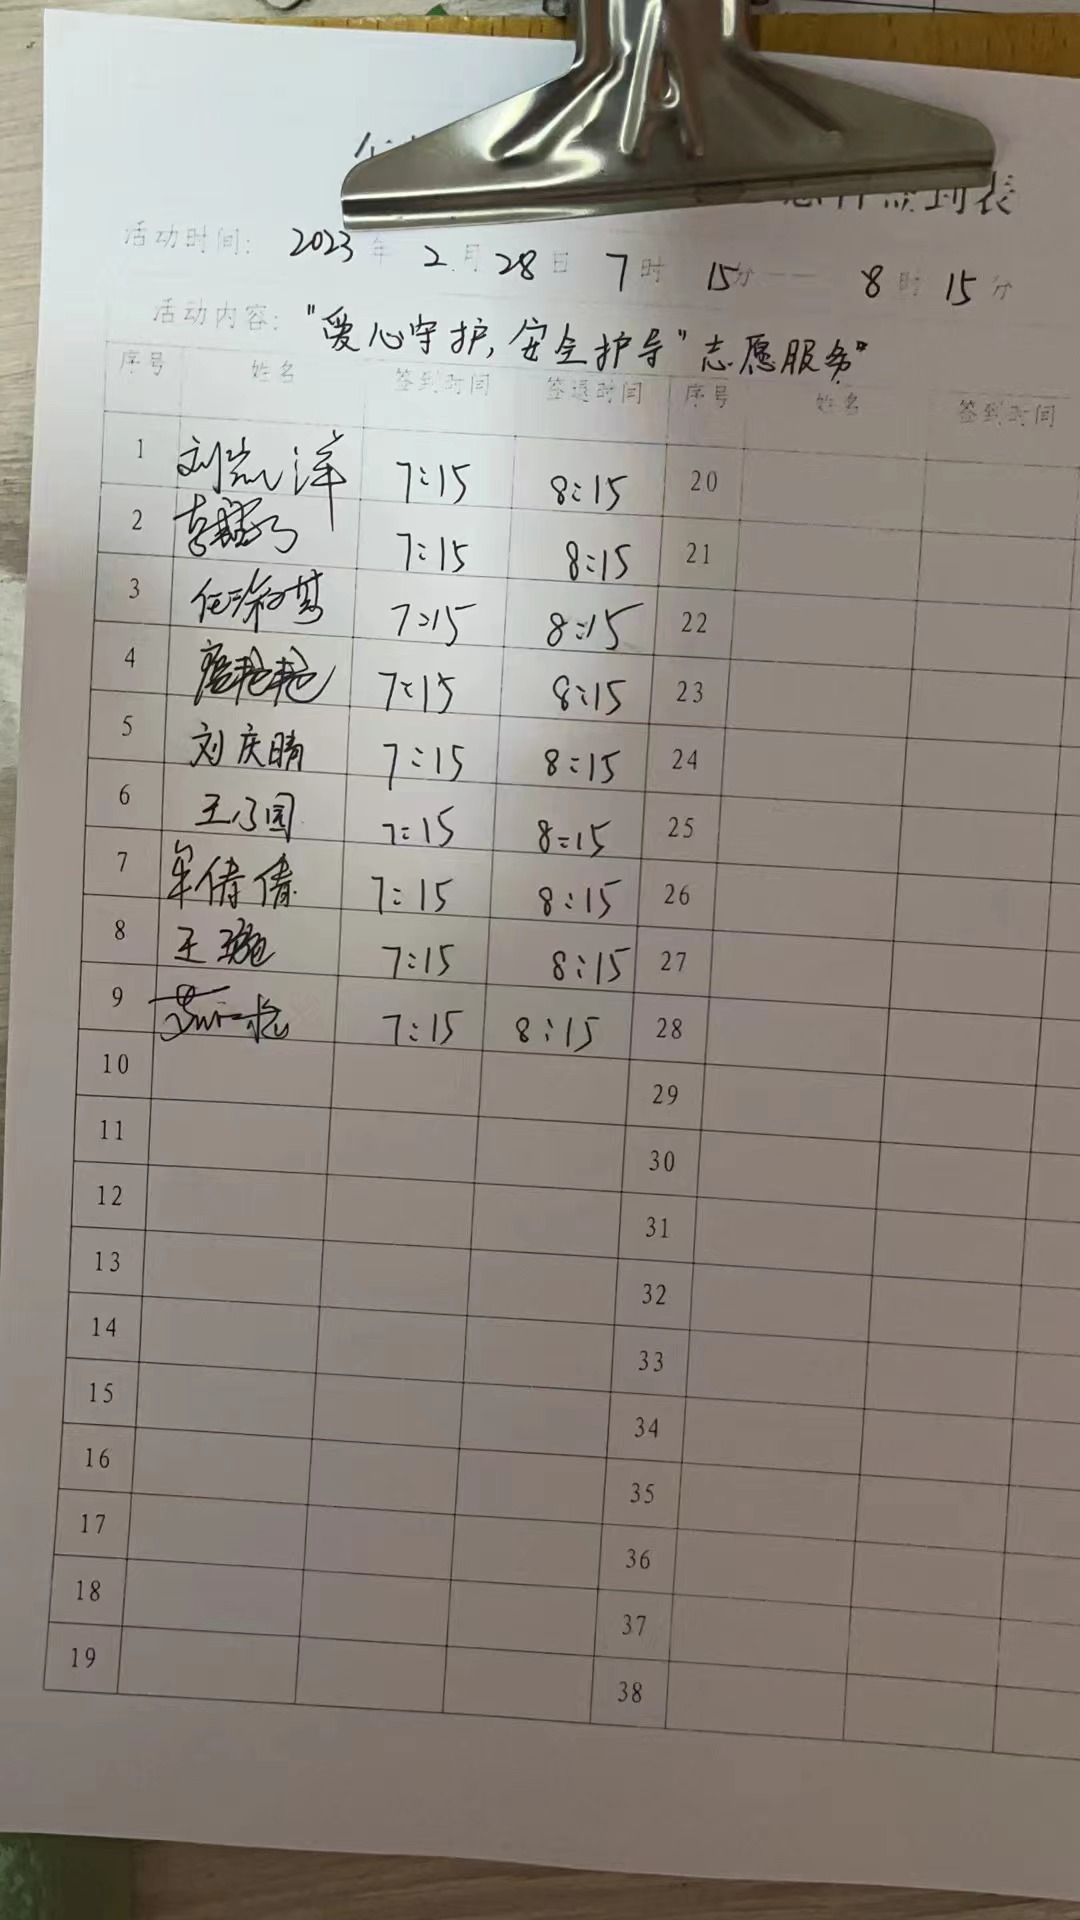 到表
活动时间: 2023年 2月28日 7时 15分 — 8时15分
活动内容: "爱心守护,安全护导"志愿服务"
序号 姓名 签到时间 签退时间 序号 姓名 签到时间
1 刘凯洋 7:15 8:15 20
2 7:15 8:15 21
3 任 7:15 8:15 22
4 7:15 8:15 23
5 刘庆晴 7:15 8:15 24
6 王乃国 7:15 8:15 25
7 牟倩倩 7:15 8:15 26
8 王 7:15 8:15 27
9 7:15 8:15 28
10 29
11 30
12 31
13 32
14 33
15 34
16 35
17 36
18 37
19 38